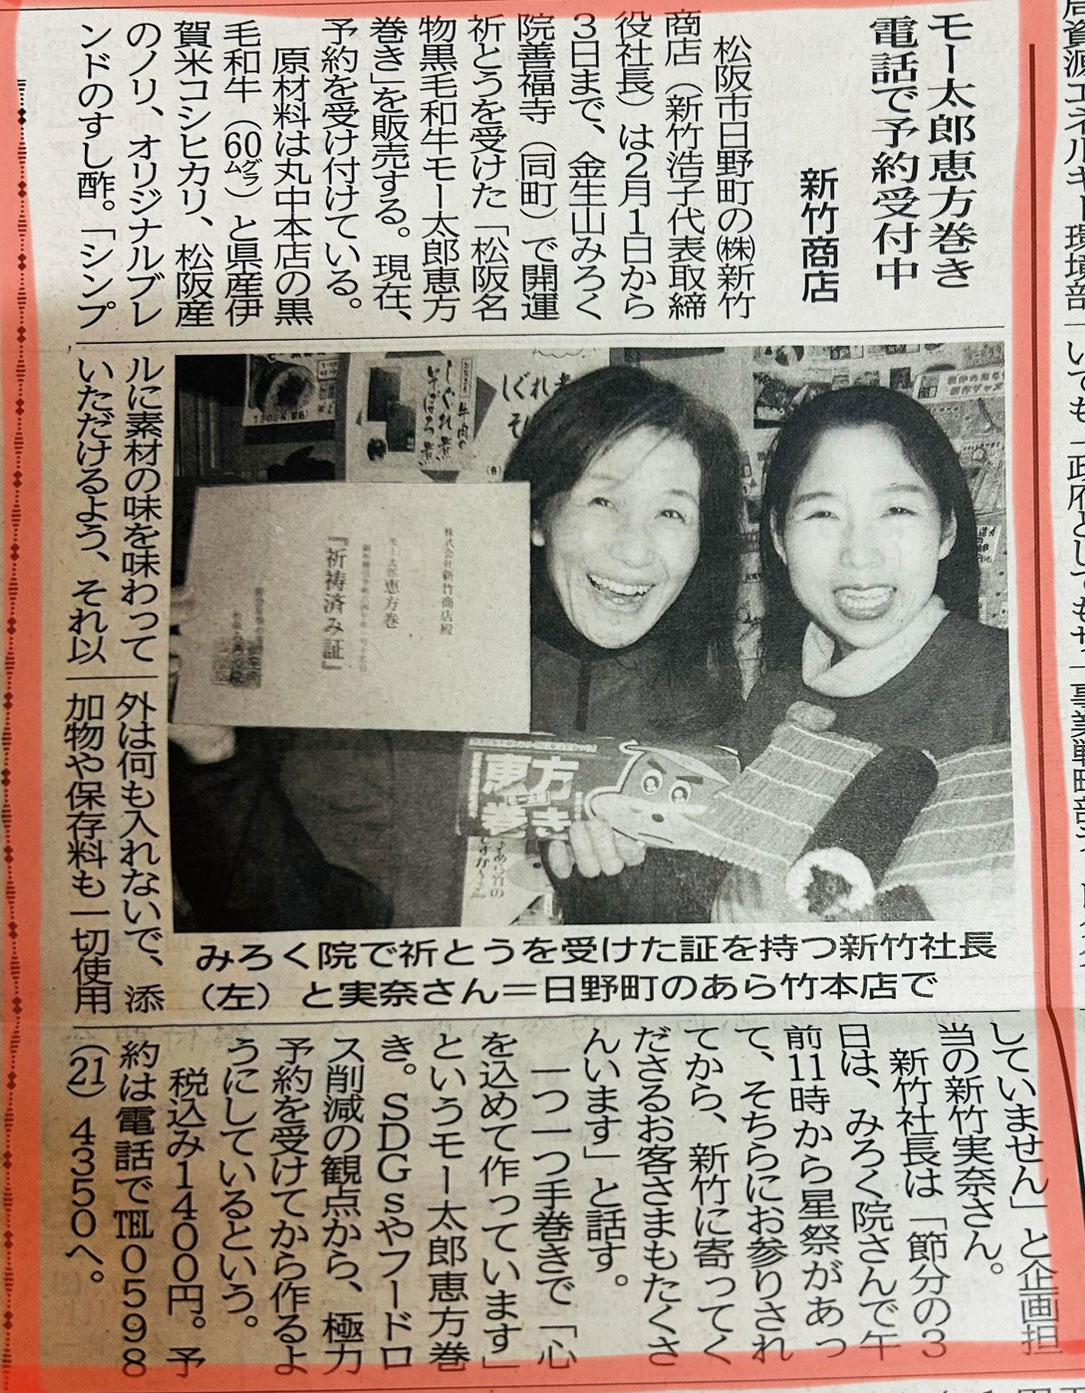 モー太郎恵方巻き
電話で予約受付中
新竹商店
松阪市日野町の㈱新竹
商店（新竹浩子代表取締
役社長）は２月１日から
３日まで、金生山みろく
院善福寺（同町）で開運
祈とうを受けた「松阪名
物黒毛和牛モー太郎恵方
巻き」を販売する。現在、
予約を受け付けている。
原材料は丸中本店の黒
毛和牛（60㌘）と県産伊
賀米コシヒカリ、松阪産
のノリ、オリジナルブレ
ンドのすし酢。「シンプ
ルに素材の味を味わって
いただけるよう、それ以
外は何も入れないで、添
加物や保存料も一切使用
していません」と企画担
当の新竹実奈さん。
新竹社長は「節分の３
日は、みろく院さんで午
前11時から星祭があっ
て、そちらにお参りされ
てから、新竹に寄ってく
ださるお客さまもたくさ
んいます」と話す。
一つ一つ手巻きで「心
を込めて作っています」
というモー太郎恵方巻
き。ＳＤＧｓやフードロ
ス削減の観点から、極力
予約を受けてから作るよ
うにしているという。
税込み１４００円。予
約は電話で℡０５９８
（21）４３５０へ。
みろく院で祈とうを受けた証を持つ新竹社長
（左）と実奈さん＝日野町のあら竹本店で
株式会社新竹商店殿
モー太郎恵方巻
『祈祷済み証』
恵方
巻き
しぐれ煮